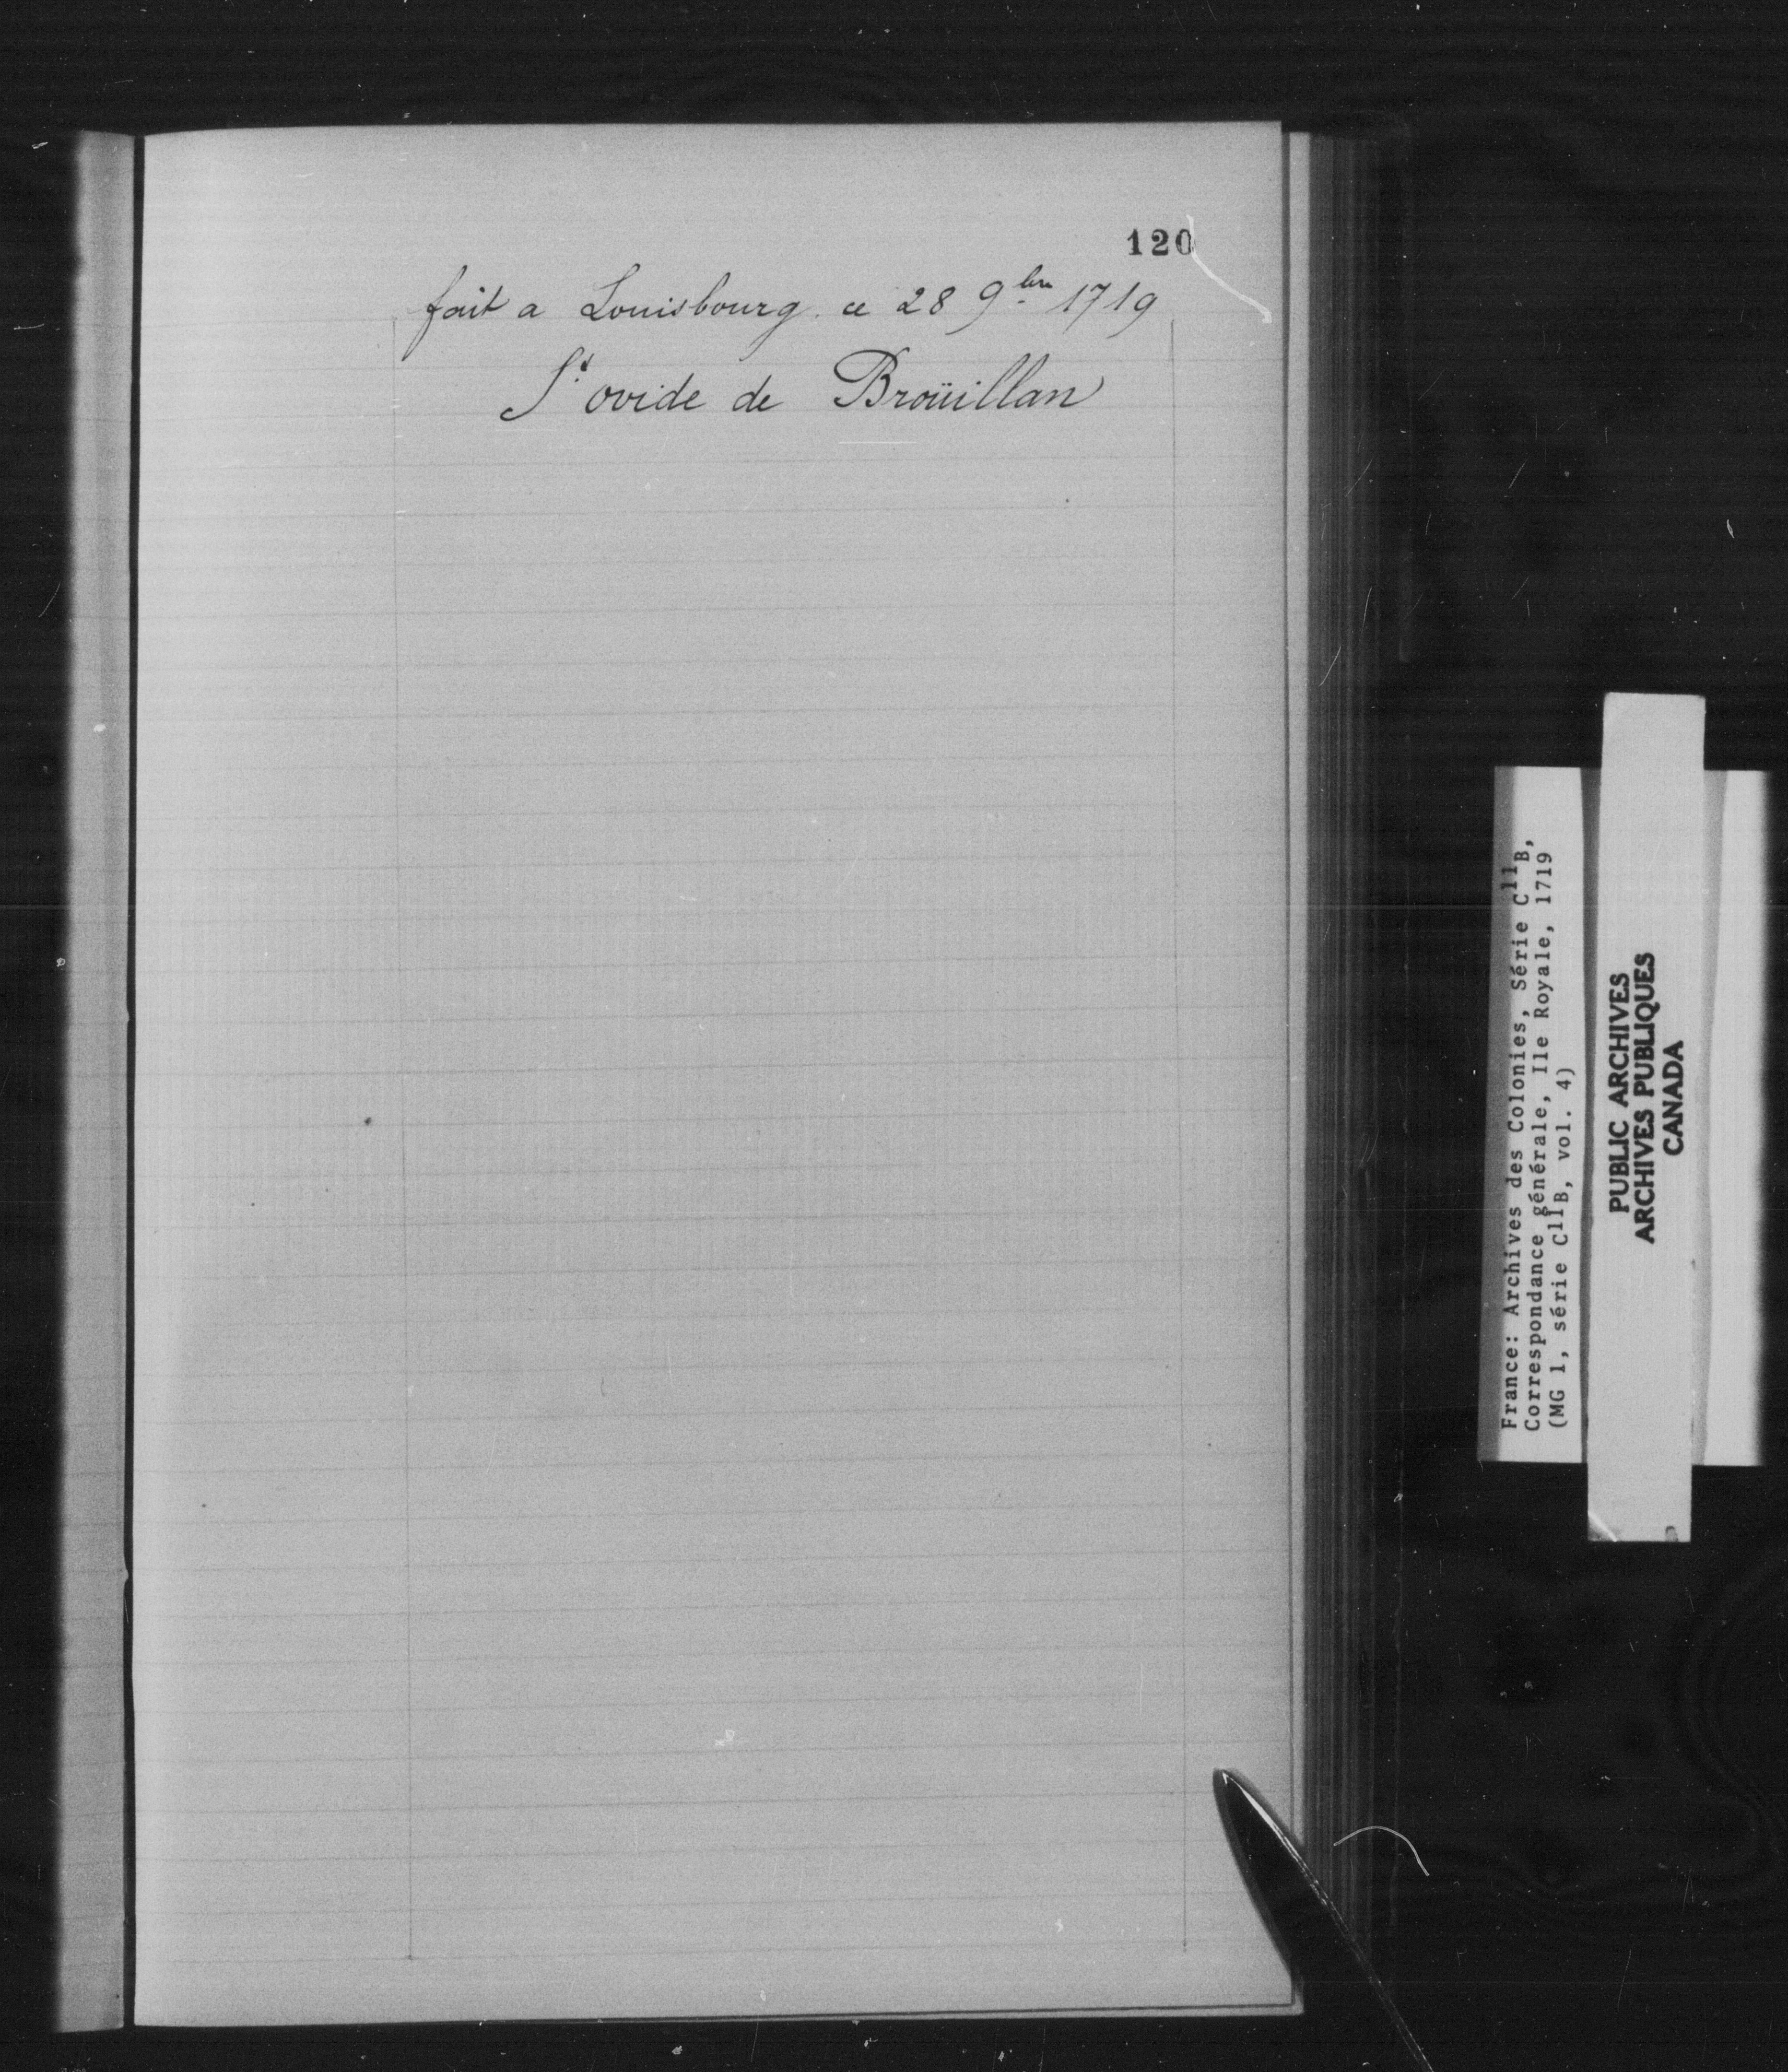 120
fait a Louisbourg. ce 28 9bre 1719
St ovide de Broüillan
France: Archives des Colonies, Série C11B,
Correspondance générale, Ile Royale, 1719
(MG 1, série C11B, vol. 4)
PUBLIC ARCHIVES
ARCHIVES PUBLIQUES
CANADA